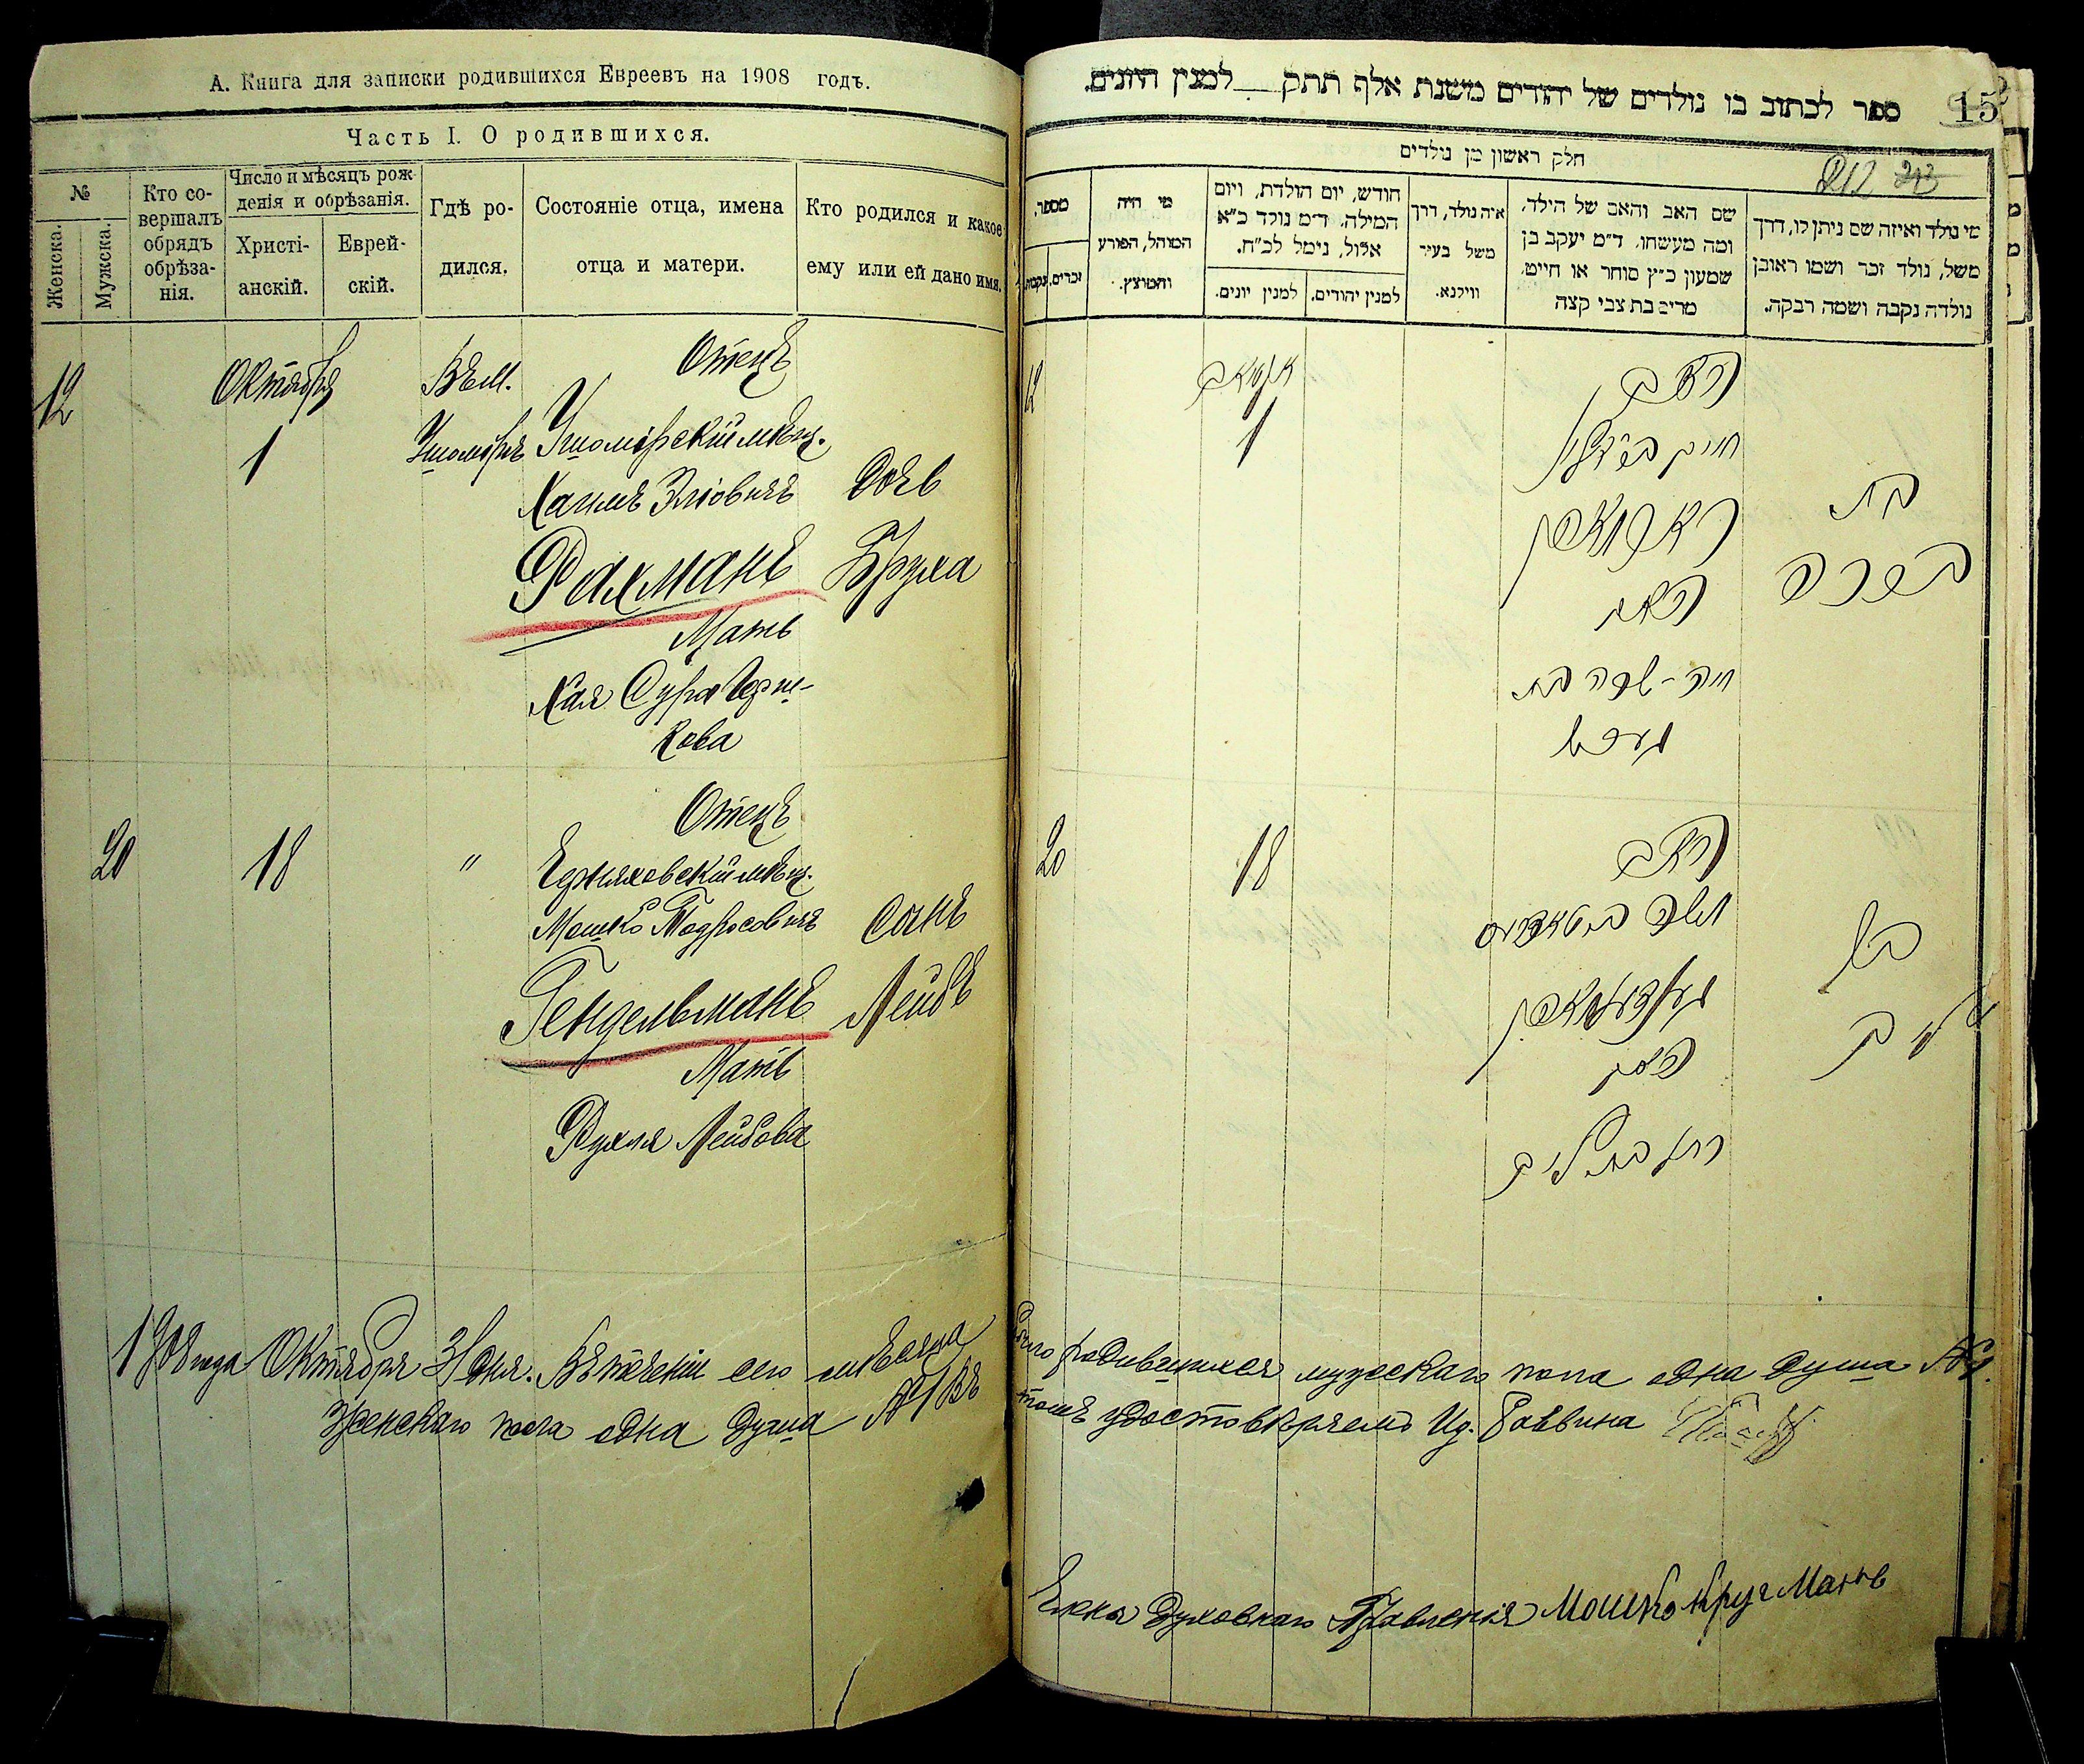 А. Книга для записки родившихся Евреевъ на 1908 годъ.
Часть I. О родившихся.
№
Женска.
Мужска.
Кто со-
вершалъ
обрядъ
обрѣза-
нія.
Число и мѣсяцъ рож-
денія и обрѣзанія.
Христі-
анскій.
Еврей-
скій.
Гдѣ ро-
дился.
Состояніе отца, имена
отца и матери.
Кто родился и какое
ему или ей дано имя.
12
Октября
1
Въ м.
Ушомірѣ
Отецъ
Ушомірскій мѣщ.
Хаимъ Эліовичъ
Рахманъ
Мать
Хая Сура Герш-
кова
Дочь
Бруха
20
18
"
Отецъ
мѣщ.
Мошко Тодросовичъ
Гендельманъ
Мать
Рухля Лейбова
Сынъ
Лейбъ
1908 года Октября 31 дня. Въ теченіи сего мѣсяца
женскаго пола одна душа №1 Въ
15
ספר לכתוב בו נולדים של יהודים משנת אלף תתק למנין היונים.
חלק ראשון מן נולדים
212 213
מספר,
זכרים.
נקבות.
מי היה
המוהל, הפורע
והמוצץ.
חודש, יום הולדת, ויום
המילה. ד״מ נולד כ״א
אלול, נימל לכ״ח.
למנין יונים.
למנין יהודים.
איה נולד, דרך
משל בעיר
ווילנא.
שם האב והאם של הילד,
ומה מעשהו. ד״מ יעקב בן
שמעון כ״ץ סוחר או חייט
מרים בת צבי קצה
מי נולד ואיזה שם ניתן לו, דרך
משל, נולד זכר ושמו ראובן
נולדה נקבה ושמה רבקה.
12
אקטאב
1
האב
חיים
ראכמאן
האם
חיה-שרה בת
הערש
בת
ברכה
20
18
האב
משה ב״ר טאדרוס
הענדעלמאן
האם
רחל בת ליב
בן
ליב
было родившихся мужескаго пола одна душа №1.
томъ удостовѣряемъ Ид. Раввина
Члены Духовнаго Правленія Мошко Кругманъ